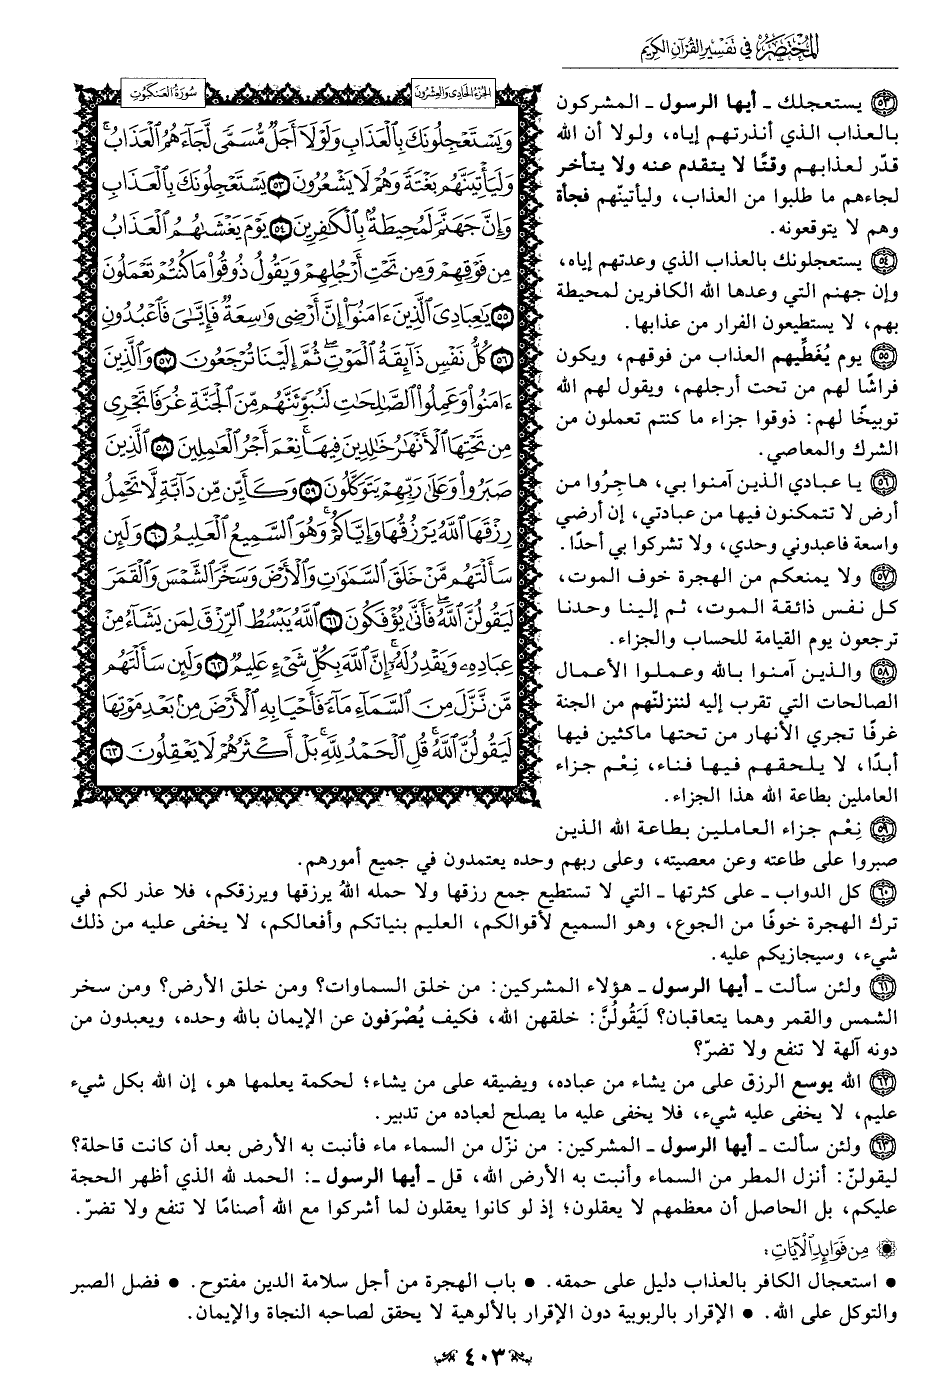 المختصر في تفسير القرآن الكريم
الجزء الحادي والعشرون
سورة العنكبوت
وَيَسْتَعْجِلُونَكَ بِالْعَذَابِ وَلَوْلَا أَجَلٌ مُّسَمًّى لَّجَاءَهُمُ الْعَذَابُ
وَلَيَأْتِيَنَّهُم بَغْتَةً وَهُمْ لَا يَشْعُرُونَ ٥٣ يَسْتَعْجِلُونَكَ بِالْعَذَابِ
وَإِنَّ جَهَنَّمَ لَمُحِيطَةٌ بِالْكَافِرِينَ ٥٤ يَوْمَ يَغْشَاهُمُ الْعَذَابُ
مِن فَوْقِهِمْ وَمِن تَحْتِ أَرْجُلِهِمْ وَيَقُولُ ذُوقُوا مَا كُنتُمْ تَعْمَلُونَ
٥٥ يَاعِبَادِيَ الَّذِينَ ءَامَنُوا إِنَّ أَرْضِي وَاسِعَةٌ فَإِيَّايَ فَاعْبُدُونِ
٥٦ كُلُّ نَفْسٍ ذَائِقَةُ الْمَوْتِ ۖ ثُمَّ إِلَيْنَا تُرْجَعُونَ ٥٧ وَالَّذِينَ
ءَامَنُوا وَعَمِلُوا الصَّالِحَاتِ لَنُبَوِّئَنَّهُم مِّنَ الْجَنَّةِ غُرَفًا تَجْرِي
مِن تَحْتِهَا الْأَنْهَارُ خَالِدِينَ فِيهَا ۚ نِعْمَ أَجْرُ الْعَامِلِينَ ٥٨ الَّذِينَ
صَبَرُوا وَعَلَىٰ رَبِّهِمْ يَتَوَكَّلُونَ ٥٩ وَكَأَيِّن مِّن دَابَّةٍ لَّا تَحْمِلُ
رِزْقَهَا اللَّهُ يَرْزُقُهَا وَإِيَّاكُمْ ۚ وَهُوَ السَّمِيعُ الْعَلِيمُ ٦٠ وَلَئِن
سَأَلْتَهُم مَّنْ خَلَقَ السَّمَاوَاتِ وَالْأَرْضَ وَسَخَّرَ الشَّمْسَ وَالْقَمَرَ
لَيَقُولُنَّ اللَّهُ ۖ فَأَنَّىٰ يُؤْفَكُونَ ٦١ اللَّهُ يَبْسُطُ الرِّزْقَ لِمَن يَشَاءُ مِنْ
عِبَادِهِ وَيَقْدِرُ لَهُ ۚ إِنَّ اللَّهَ بِكُلِّ شَيْءٍ عَلِيمٌ ٦٢ وَلَئِن سَأَلْتَهُم
مَّن نَّزَّلَ مِنَ السَّمَاءِ مَاءً فَأَحْيَا بِهِ الْأَرْضَ مِن بَعْدِ مَوْتِهَا
لَيَقُولُنَّ اللَّهُ ۚ قُلِ الْحَمْدُ لِلَّهِ ۚ بَلْ أَكْثَرُهُمْ لَا يَعْقِلُونَ ٦٣
٥٣ يستعجلك ـ أيها الرسول ـ المشركون
بالعذاب الذي أنذرتهم إياه، ولولا أن الله
قدّر لعذابهم وقتًا لا يتقدم عنه ولا يتأخر
لجاءهم ما طلبوا من العذاب، وليأتينّهم فجأة
وهم لا يتوقعونه.
٥٤ يستعجلونك بالعذاب الذي وعدتهم إياه،
وإن جهنم التي وعدها الله الكافرين لمحيطة
بهم، لا يستطيعون الفرار من عذابها.
٥٥ يوم يُغَطِّيهم العذاب من فوقهم، ويكون
فراشًا لهم من تحت أرجلهم، ويقول لهم الله
توبيخًا لهم: ذوقوا جزاء ما كنتم تعملون من
الشرك والمعاصي.
٥٦ يا عبادي الذين آمنوا بي، هاجِرُوا من
أرض لا تتمكنون فيها من عبادتي، إن أرضي
واسعة فاعبدوني وحدي، ولا تشركوا بي أحدًا.
٥٧ ولا يمنعكم من الهجرة خوف الموت،
كل نفس ذائقة الموت، ثم إلينا وحدنا
ترجعون يوم القيامة للحساب والجزاء.
٥٨ والذين آمنوا بالله وعملوا الأعمال
الصالحات التي تقرب إليه لننزلنّهم من الجنة
غرفًا تجري الأنهار من تحتها ماكثين فيها
أبدًا، لا يلحقهم فيها فناء، نِعْم جزاء
العاملين بطاعة الله هذا الجزاء.
٥٩ نِعْم جزاء العاملين بطاعة الله الذين
صبروا على طاعته وعن معصيته، وعلى ربهم وحده يعتمدون في جميع أمورهم.
٦٠ كل الدواب ـ على كثرتها ـ التي لا تستطيع جمع رزقها ولا حمله اللهُ يرزقها ويرزقكم، فلا عذر لكم في
ترك الهجرة خوفًا من الجوع، وهو السميع لأقوالكم، العليم بنياتكم وأفعالكم، لا يخفى عليه من ذلك
شيء، وسيجازيكم عليه.
٦١ ولئن سألت ـ أيها الرسول ـ هؤلاء المشركين: من خلق السماوات؟ ومن خلق الأرض؟ ومن سخر
الشمس والقمر وهما يتعاقبان؟ لَيَقُولُنَّ: خلقهن الله، فكيف يُصْرَفون عن الإيمان بالله وحده، ويعبدون من
دونه آلهة لا تنفع ولا تضرّ؟
٦٢ الله يوسع الرزق على من يشاء من عباده، ويضيقه على من يشاء؛ لحكمة يعلمها هو، إن الله بكل شيء
عليم، لا يخفى عليه شيء، فلا يخفى عليه ما يصلح لعباده من تدبير.
٦٣ ولئن سألت ـ أيها الرسول ـ المشركين: من نزّل من السماء ماء فأنبت به الأرض بعد أن كانت قاحلة؟
ليقولنّ: أنزل المطر من السماء وأنبت به الأرض الله، قل ـ أيها الرسول ـ: الحمد لله الذي أظهر الحجة
عليكم، بل الحاصل أن معظمهم لا يعقلون؛ إذ لو كانوا يعقلون لما أشركوا مع الله أصنامًا لا تنفع ولا تضرّ.
من فوائد الآيات:
• استعجال الكافر بالعذاب دليل على حمقه. • باب الهجرة من أجل سلامة الدين مفتوح. • فضل الصبر
والتوكل على الله. • الإقرار بالربوبية دون الإقرار بالألوهية لا يحقق لصاحبه النجاة والإيمان.
٤٠٣